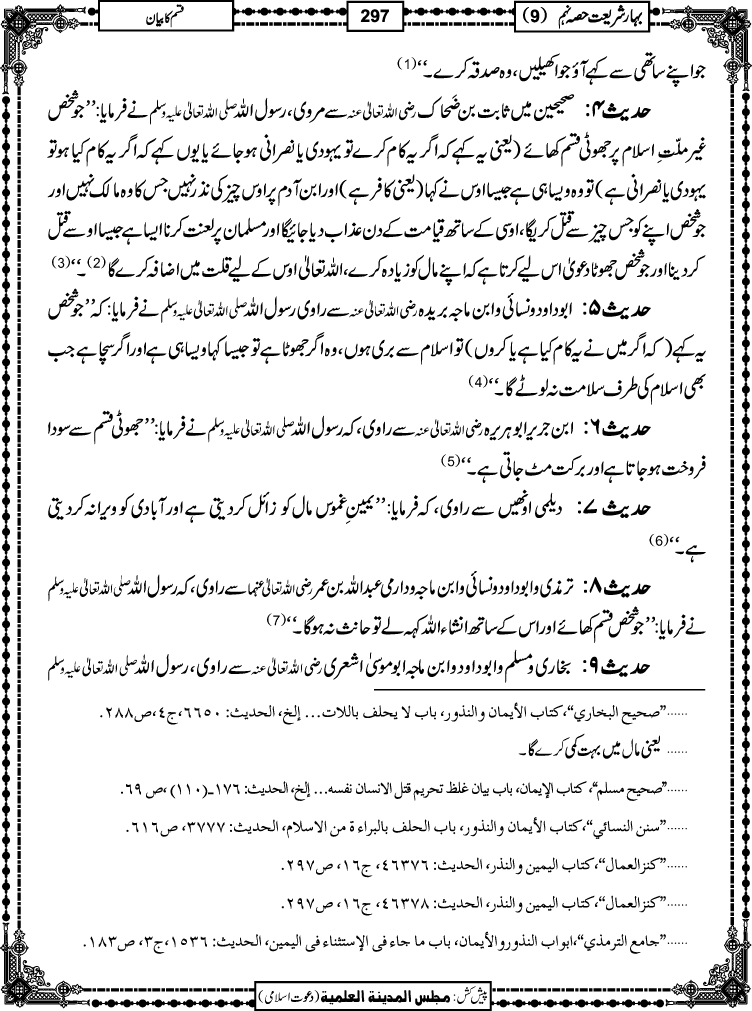 بہارِ شریعت حصہ نہم (9)
297
قسم کا بیان
جو اپنے ساتھی سے کہے آؤ جوا کھیلیں، وہ صدقہ کرے۔‘‘(1)
حدیث ۴: صحیحین میں ثابت بن ضَحاک رضی اللہ تعالیٰ عنہ سے مروی، رسول اللہ صلی اللہ تعالیٰ علیہ وسلم نے فرمایا: ’’جو شخص
غیر ملّتِ اسلام پر جھوٹی قسم کھائے (یعنی یہ کہے کہ اگر یہ کام کرے تو یہودی یا نصرانی ہوجائے یا یوں کہے کہ اگر یہ کام کیا ہو تو
یہودی یا نصرانی ہے) تو وہ ویسا ہی ہے جیسا اوس نے کہا (یعنی کافر ہے) اور ابن آدم پر اوس چیز کی نذر نہیں جس کا وہ مالک نہیں اور
جو شخص اپنے کو جس چیز سے قتل کریگا، اوسی کے ساتھ قیامت کے دن عذاب دیا جائیگا اور مسلمان پر لعنت کرنا ایسا ہے جیسا اوسے قتل
کردینا اور جو شخص جھوٹا دعویٰ اس لیے کرتا ہے کہ اپنے مال کو زیادہ کرے، اللہ تعالیٰ اوس کے لیے قلت میں اضافہ کرے گا (2)۔‘‘(3)
حدیث ۵: ابوداود و نسائی و ابن ماجہ بریدہ رضی اللہ تعالیٰ عنہ سے راوی رسول اللہ صلی اللہ تعالیٰ علیہ وسلم نے فرمایا: کہ ’’جو شخص
یہ کہے (کہ اگر میں نے یہ کام کیا ہے یا کروں) تو اسلام سے بری ہوں، وہ اگر جھوٹا ہے تو جیسا کہا ویسا ہی ہے اور اگر سچا ہے جب
بھی اسلام کی طرف سلامت نہ لوٹے گا۔‘‘(4)
حدیث ۶: ابن جریر ابوہریرہ رضی اللہ تعالیٰ عنہ سے راوی، کہ رسول اللہ صلی اللہ تعالیٰ علیہ وسلم نے فرمایا: ’’جھوٹی قسم سے سودا
فروخت ہوجاتا ہے اور برکت مٹ جاتی ہے۔‘‘(5)
حدیث ۷: دیلمی اونھیں سے راوی، کہ فرمایا: ’’یمینِ غموس مال کو زائل کردیتی ہے اور آبادی کو ویرانہ کردیتی
ہے۔‘‘(6)
حدیث ۸: ترمذی و ابوداود و نسائی و ابن ماجہ و دارمی عبداللہ بن عمر رضی اللہ تعالیٰ عنہما سے راوی، کہ رسول اللہ صلی اللہ تعالیٰ علیہ وسلم
نے فرمایا: ’’جو شخص قسم کھائے اور اس کے ساتھ انشاء اللہ کہہ لے تو حانث نہ ہوگا۔‘‘(7)
حدیث ۹: بخاری و مسلم و ابوداود و ابن ماجہ ابوموسیٰ اشعری رضی اللہ تعالیٰ عنہ سے راوی، رسول اللہ صلی اللہ تعالیٰ علیہ وسلم
......”صحیح البخاري“، کتاب الأیمان والنذور، باب لا یحلف باللات... إلخ، الحدیث: ٦٦٥٠، ج٤، ص٢٨٨.
...... یعنی مال میں بہت کمی کرے گا۔
......”صحیح مسلم“، کتاب الإیمان، باب بیان غلظ تحریم قتل الانسان نفسه... إلخ، الحدیث: ١٧٦-(١١٠)، ص٦٩.
......”سنن النسائي“، کتاب الأیمان والنذور، باب الحلف بالبراءة من الاسلام، الحدیث: ٣٧٧٧، ص٦١٦.
......”کنزالعمال“، کتاب الیمین والنذر، الحدیث: ٤٦٣٧٦، ج١٦، ص٢٩٧.
......”کنزالعمال“، کتاب الیمین والنذر، الحدیث: ٤٦٣٧٨، ج١٦، ص٢٩٧.
......”جامع الترمذي“، ابواب النذور والأیمان، باب ما جاء فی الإستثناء فی الیمین، الحدیث: ١٥٣٦، ج٣، ص١٨٣.
پیش کش: مجلس المدینة العلمیة (دعوتِ اسلامی)